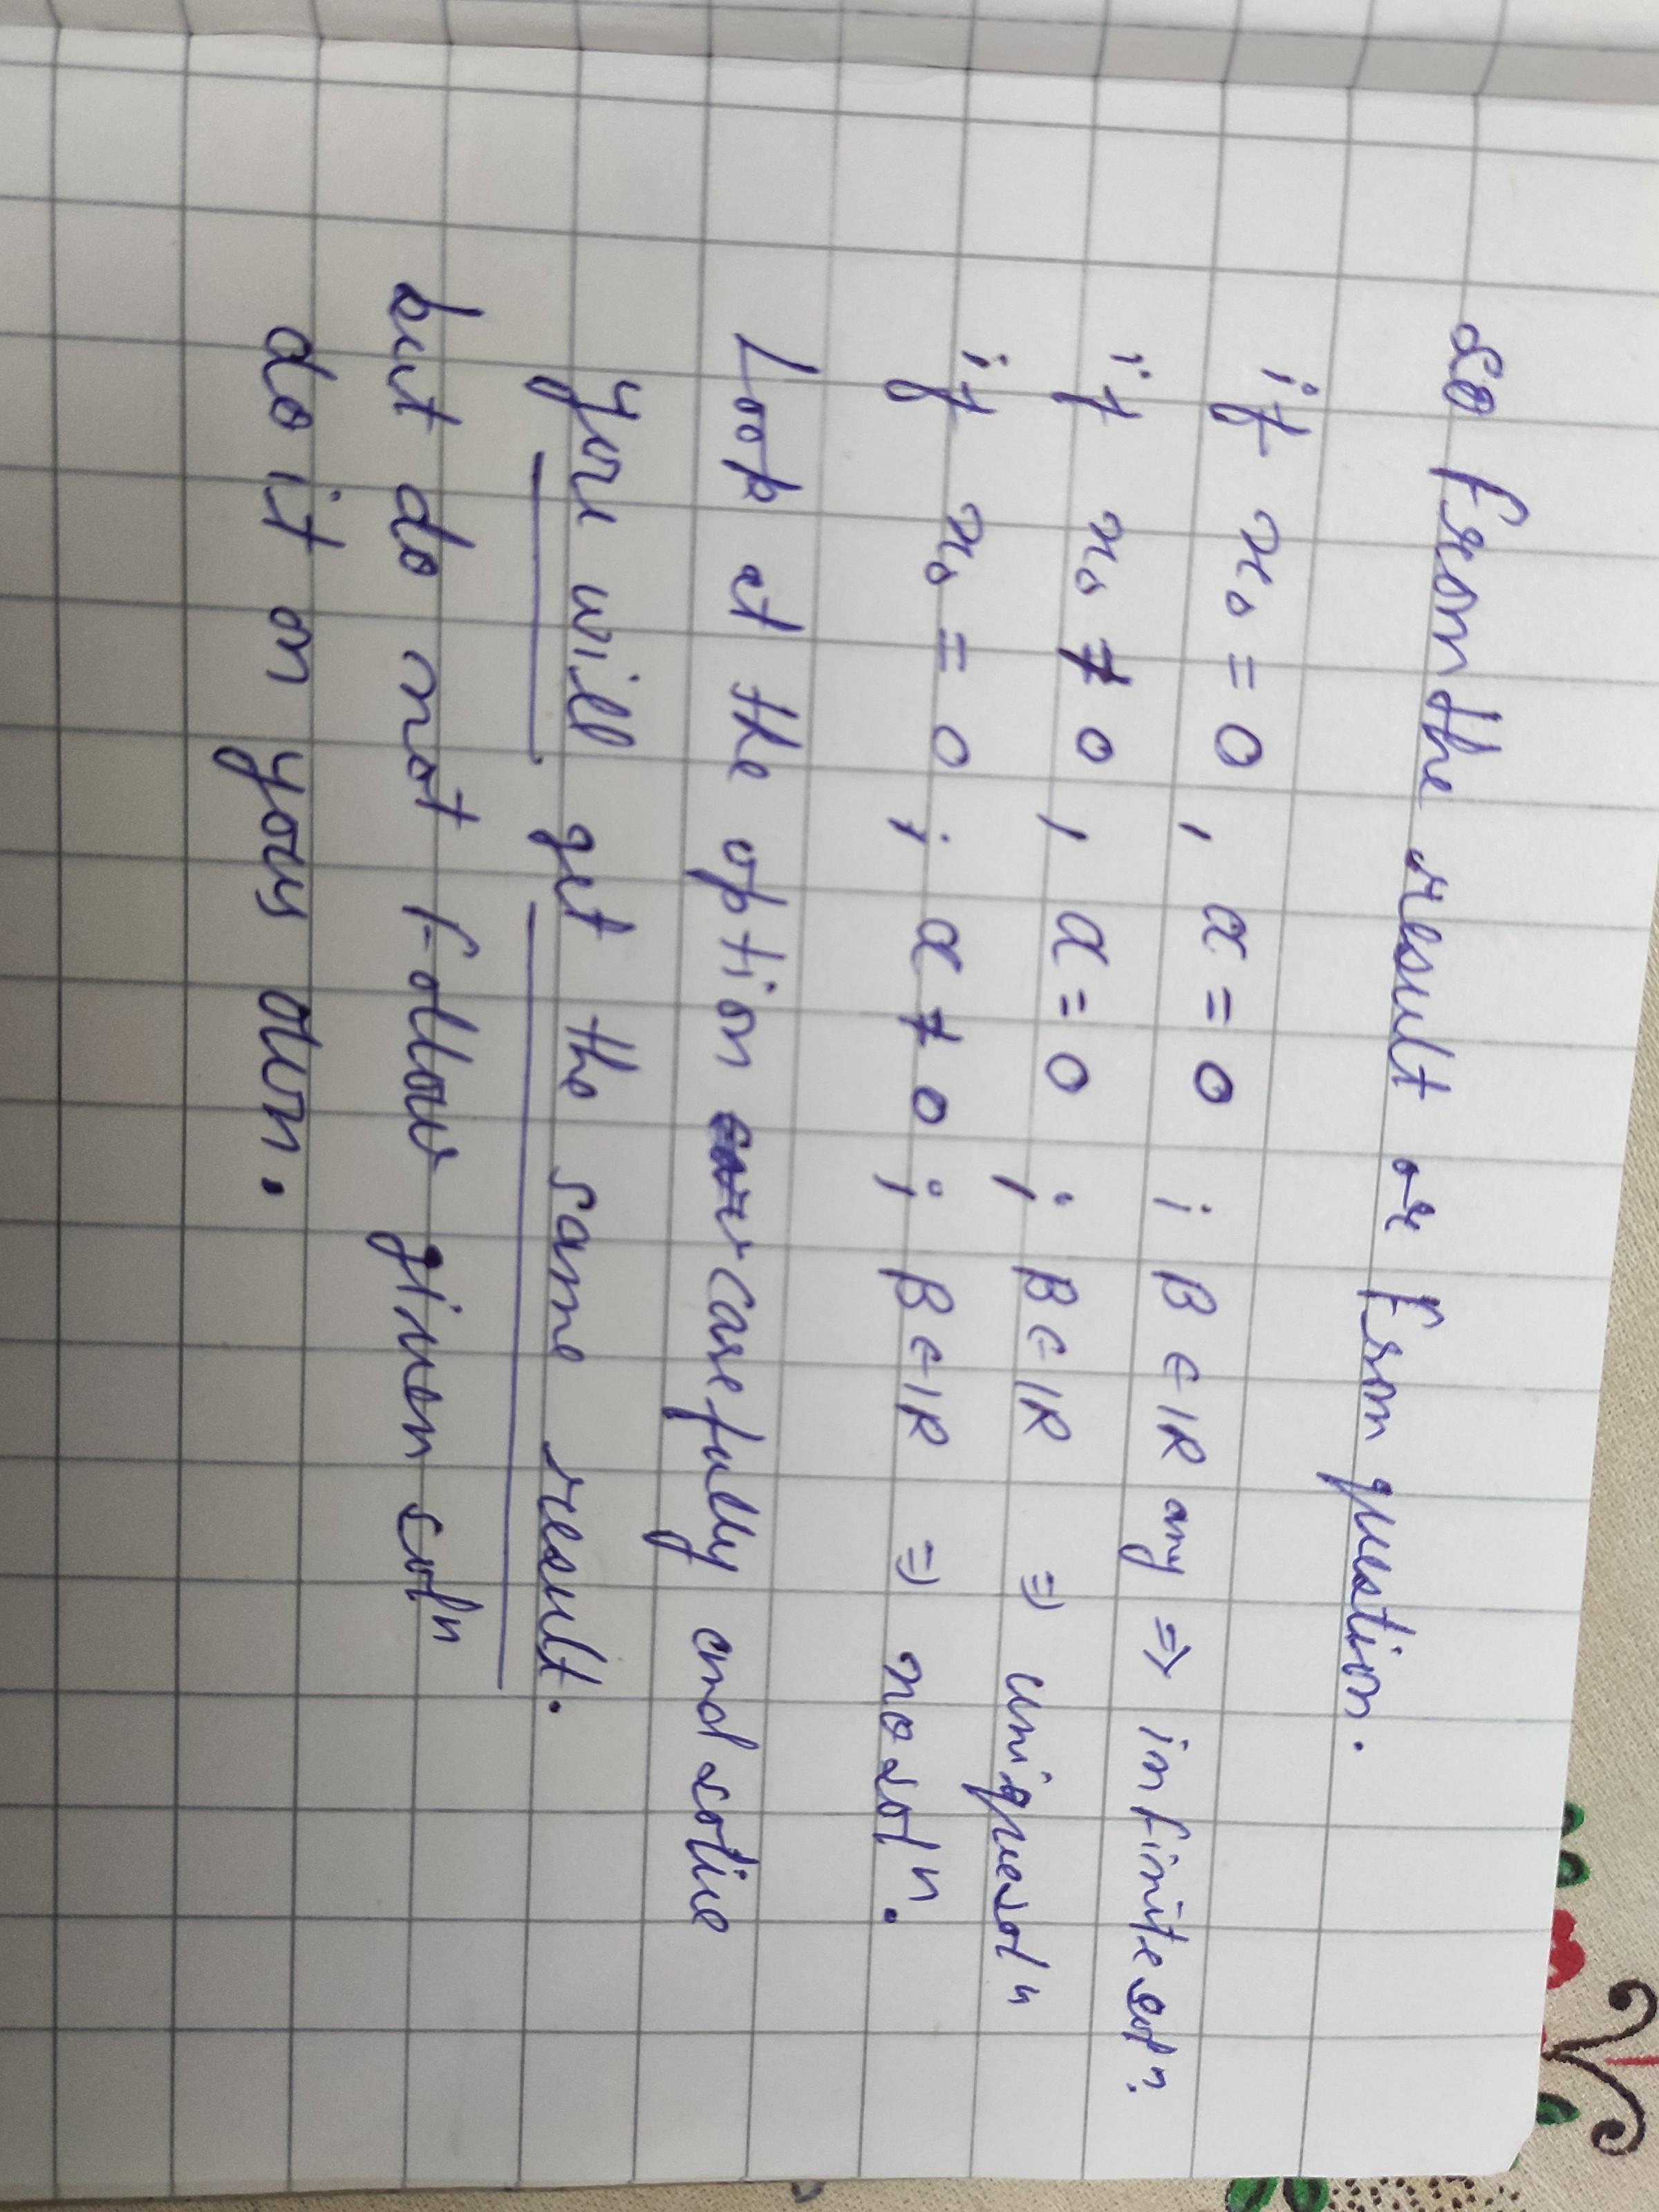 so from the result or from question.
if x₀ = 0 , α = 0 ; β ∈ IR any ⇒ infinite solⁿ.
if x₀ ≠ 0 , α = 0 ; β ∈ IR ⇒ unique solⁿ
if x₀ = 0 ; α ≠ 0 ; β ∈ IR ⇒ no solⁿ.
Look at the option carefully and solve
you will get the same result.
but do not follow given solⁿ
do it on your own.